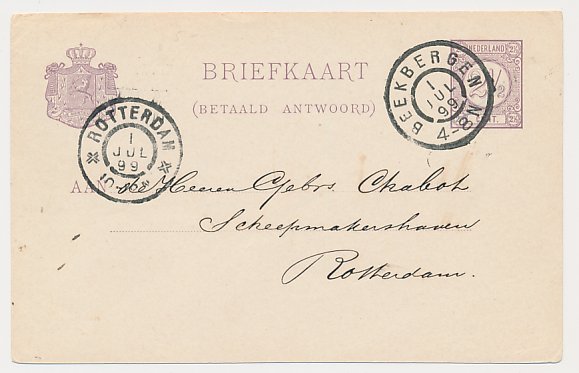 NEDERLAND
BRIEFKAART
(BETAALD ANTWOORD)
BEEKBERGEN
1
JUL
99
4-8N
ROTTERDAM
1
JUL
99
AAN de Heeren Gebrs. Chabot
Scheepmakershaven
Rotterdam.